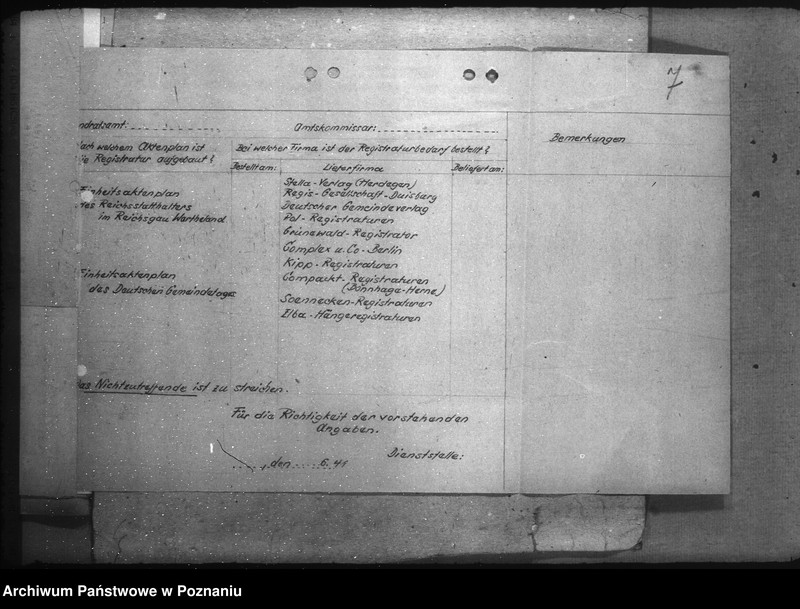 7
ndratsamt:
Amtskommissar:
Bemerkungen
ach welchem Aktenplan ist
ie Registratur aufgebaut?
Bei welcher Firma ist der Registraturbedarf bestellt?
Bestellt am:
Lieferfirma
Beliefert am:
Einheitsaktenplan
des Reichsstatthalters
im Reichsgau Wartheland
Einheitsaktenplan
des Deutschen Gemeindetages
Stella-Verlag (Herdegen)
Regis-Gesellschaft-Duisburg
Deutscher Gemeindeverlag
Pol-Registraturen
Grünewald-Registrator
Complex u. Co-Berlin
Kipp-Registraturen
Compackt-Registraturen
(Dönnhaga-Herne)
Soennecken-Registraturen
Elba-Hängeregistraturen
as Nichtzutreffende ist zu streichen.
Für die Richtigkeit der vorstehenden
Angaben.
, den 6.41
Dienststelle:
Archiwum Państwowe w Poznaniu